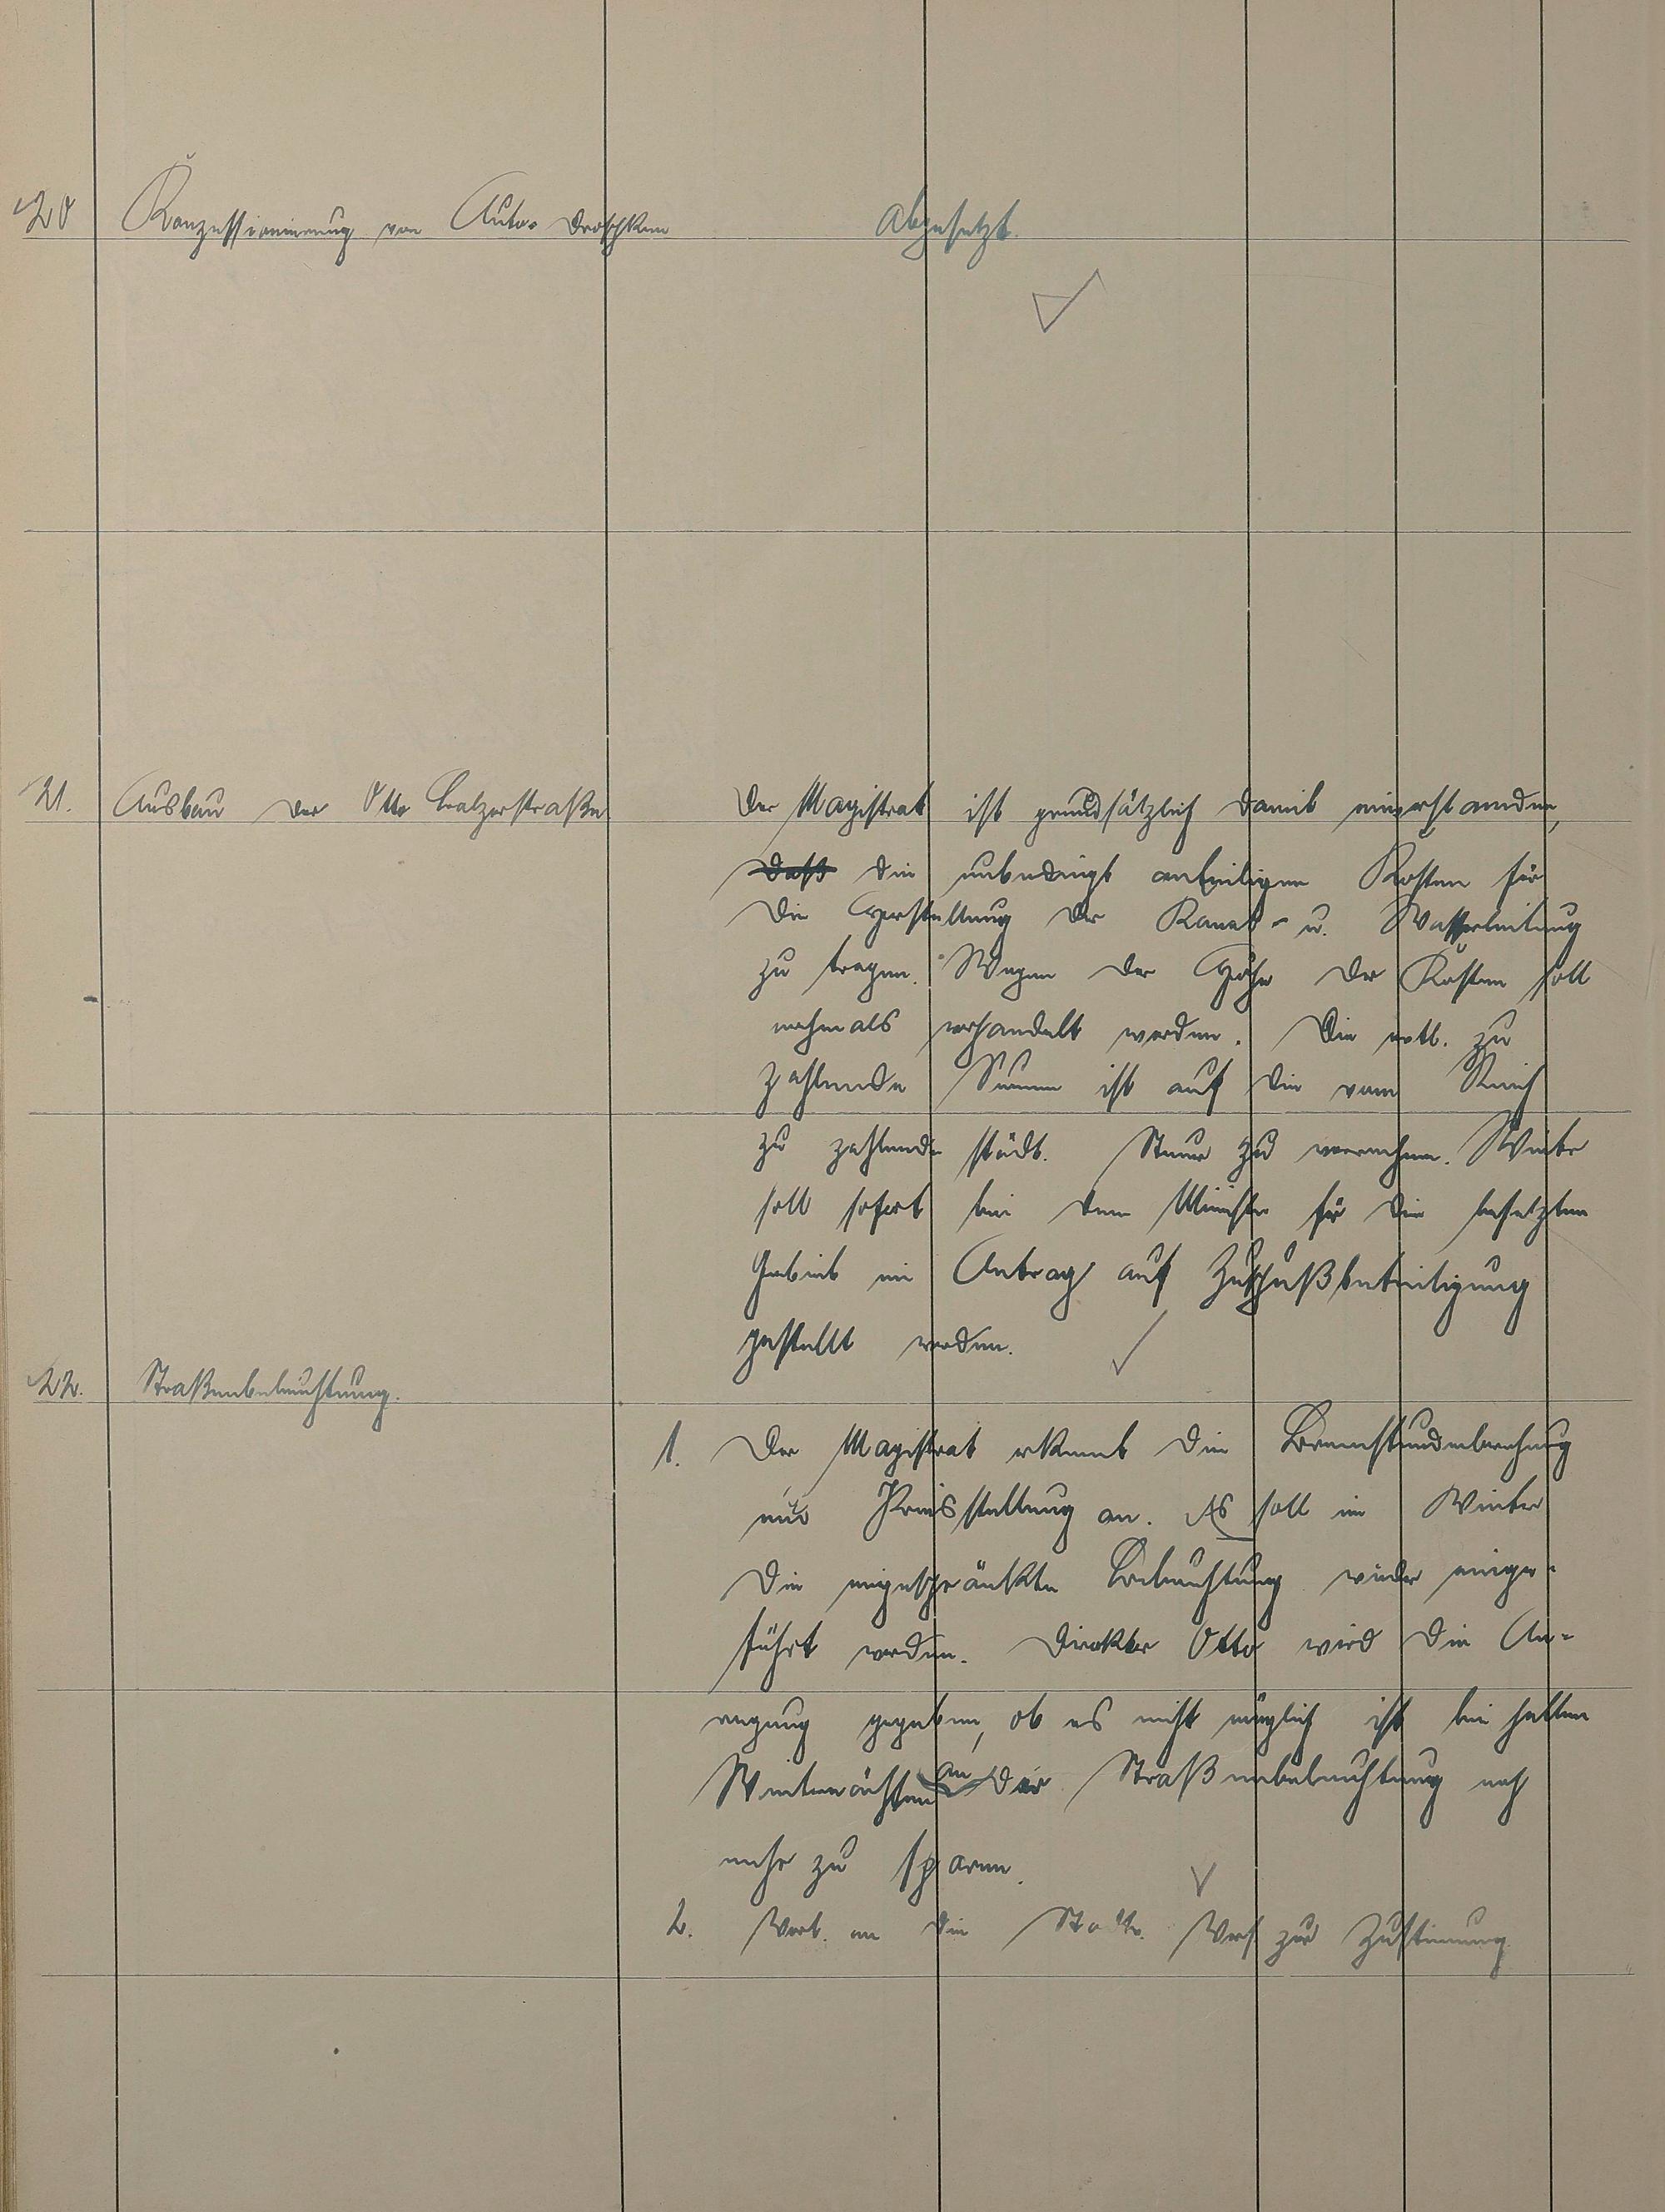 20 Konzessionierung von Auto-Droschken Abgesetzt.
21. Ausbau der Otto Balzerstraße Der Magistrat ist grundsätzlich damit einverstanden,
daß die unbedingt anteiligen Kosten für
die Herstellung der Kanal- u. Wasserleitung
zu tragen. Wegen der Höhe der Kosten soll
nochmals verhandelt werden. Die evtl. zu
zahlende Summe ist auf die vom Reich
zu zahlende städt. Steuer zu verrechnen. Weiter
soll sofort bei dem Minister für die besetzten
Gebiete ein Antrag auf Zuschußbeteiligung
gestellt werden.
22. Straßenbeleuchtung.
1. Der Magistrat erkennt die Brennstundenberechnung
und Preisstellung an. Es soll im Winter
die eingeschränkte Beleuchtung wieder einge-
führt werden. Direktor Otto wird die An-
regung gegeben, ob es nicht möglich ist bei hellen
Winternächten an der Straßenbeleuchtung noch
mehr zu sparen.
2. Vort. an die Stadtv. Vers. zur Zustimmung.